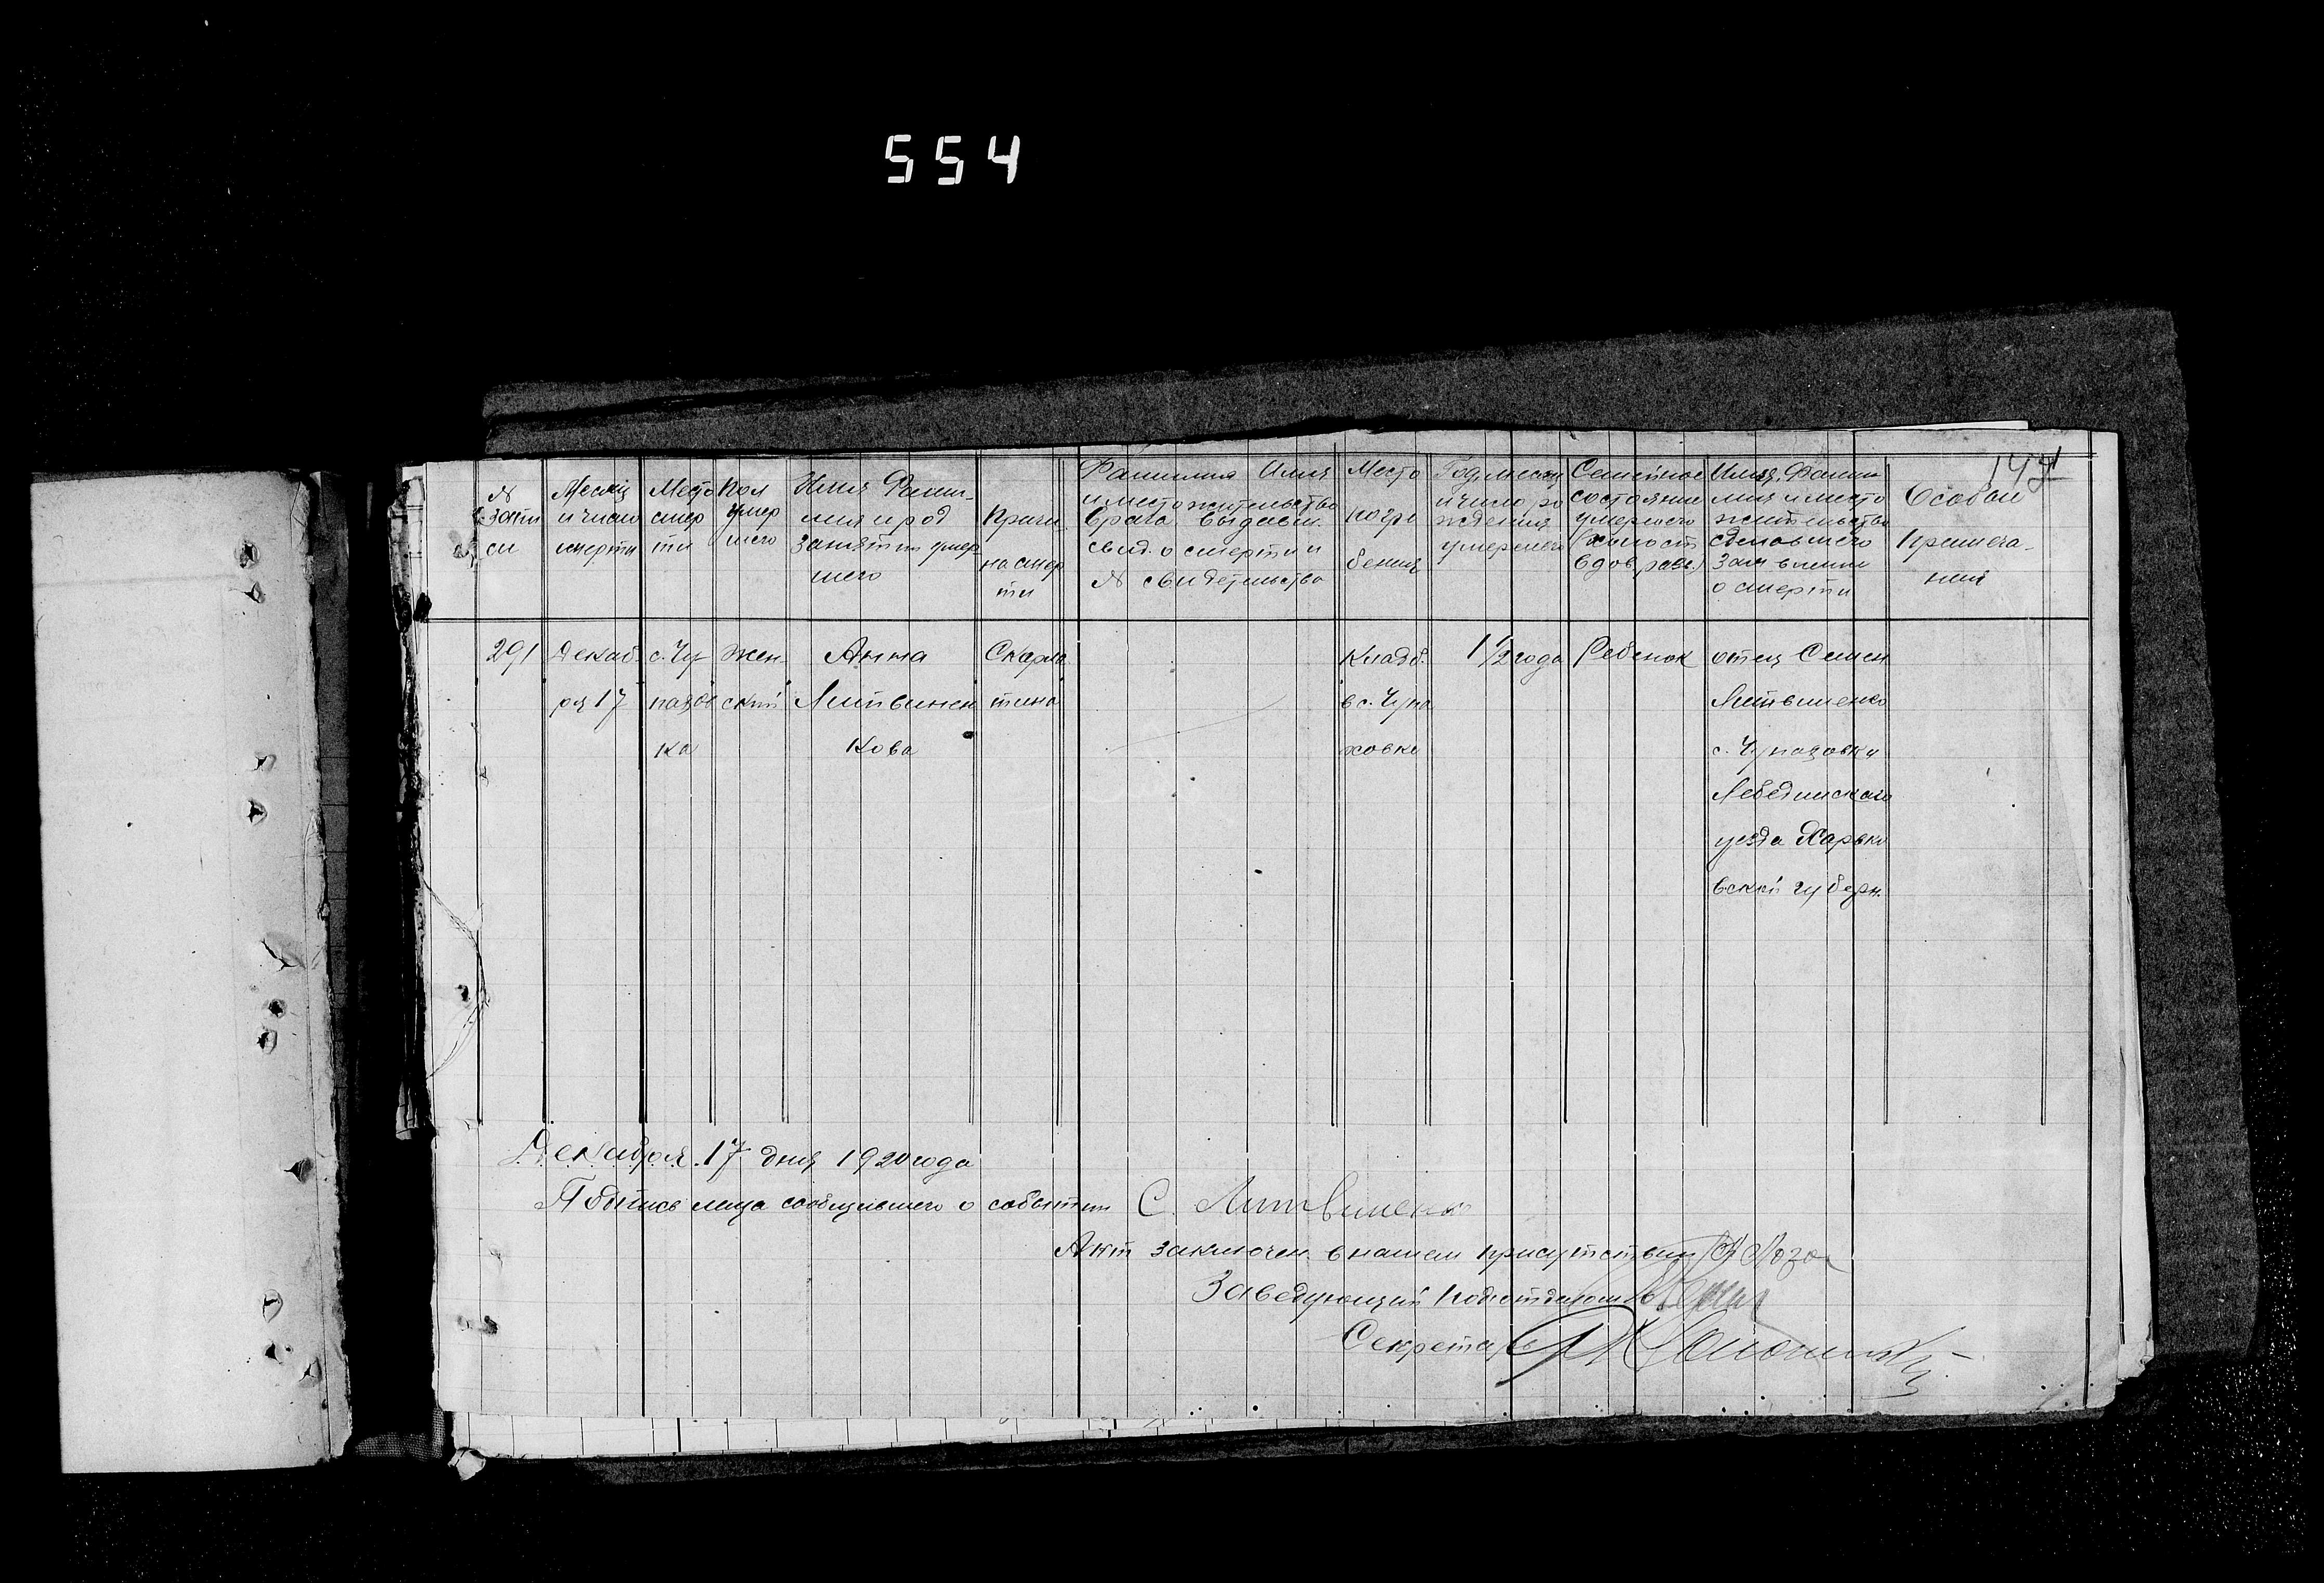 554
147
№ запи си
Месяц и число смерти
Место смер ти
Пол умер шего
Имя Фами- лия и род занятия умер шего
Причи на смер ти
Фамилия Имя и место жительства врача выдавш. свид. о смерти и № свидетельства
Место погре бения
Год, месяц и число ро ждения умершего
Семейное состояние умершего (холост вдов, разв.)
Имя, Фами лия и место жительство сделавшего заявление о смерти
Особые Примеча- ния
291
Декаб ря 17
с. Чу пахов ка
Жен- ский
Анна Литвинен кова
Скарла тина
Кладб. в с. Чупа ховке
1 1/2 года
Ребенок
отец Семен
Литвиненко
с. Чупаховки
Лебединского
уезда Харько
вской губерн.
Декабря 17 дня 1920 года
Подпись лица сообщившего о событии С. Литвиненко
Акт заключен в нашем присутствии
Заведующий подотделом
Секретарь